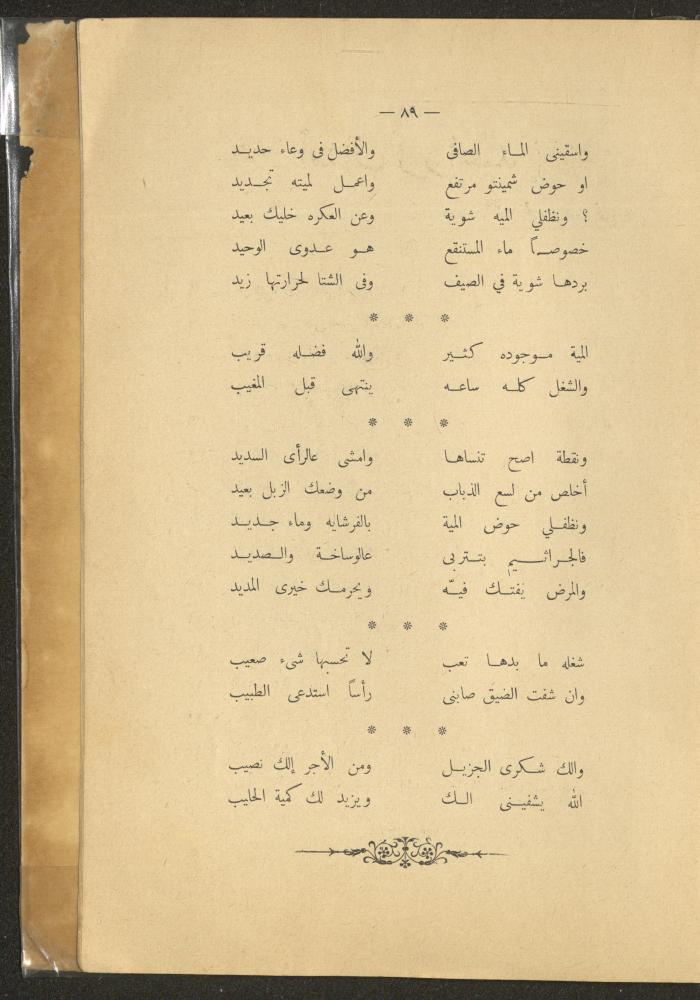 — ٨٩ —
واسقيني الماء الصافى والأفضل فى وعاء حديد
او حوض شمينتو مرتفع واعمل لميته تجديد
؟ ونظفلي الميه شوية وعن العكره خليك بعيد
خصوصاً ماء المستنقع هو عدوى الوحيد
بردها شوية في الصيف وفى الشتا لحرارتها زيد
* * *
المية موجوده كثير والله فضله قريب
والشغل كله ساعه ينتهى قبل المغيب
* * *
ونقطة اصح تنساها وامشى عالرأى السديد
أخلص من لسع الذباب من وضعك الزبل بعيد
ونظفلي حوض المية بالفرشايه وماء جديد
فالجراثيم بتتربى عالوساخة والصديد
والمرض يفتك فيّه ويحرمك خيرى المديد
* * *
شغله ما بدها تعب لا تحسبها شىء صعيب
وان شفت الضيق صابنى رأساً استدعى الطبيب
* * *
والك شكرى الجزيل ومن الأجر إلك نصيب
الله يشفينى الك ويزيد لك كمية الحليب